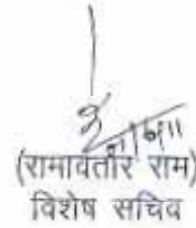 (रामावतार राम)
विशेष सचिव